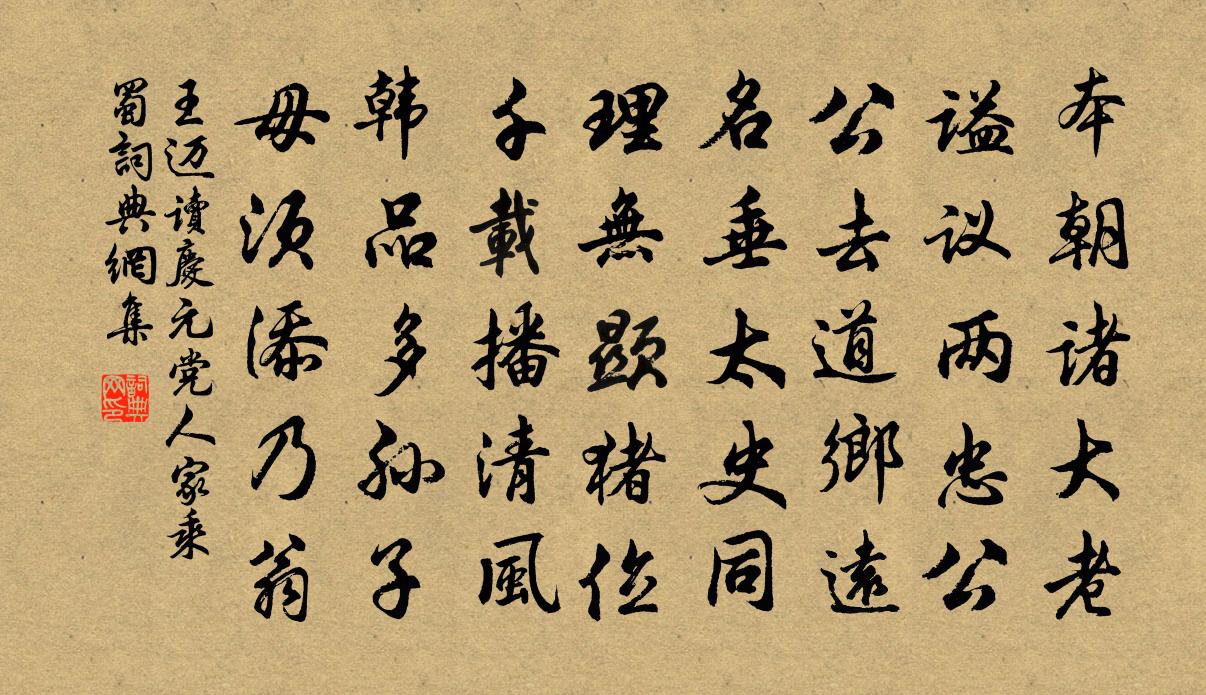 本朝诸大老
谥议两忠公
公去道鄉遠
名垂太史同
理無顯猪
千載播清風
韩品多孙子
毋须添乃翁
王迈讀慶元党人家乘
蜀詞典網集
詞典网印